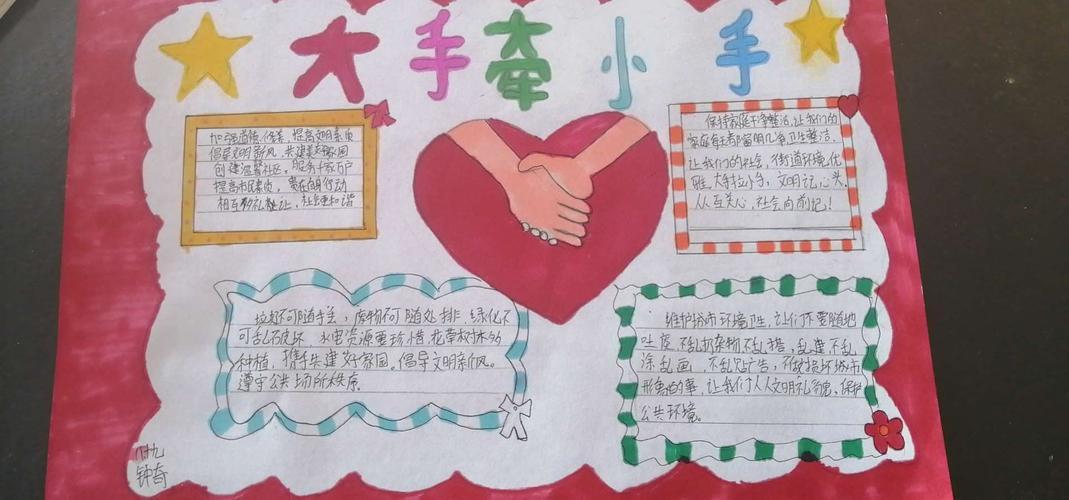 大手牵小手
加强道德修养,提高文明素质
倡导文明新风,共建美好家园
创建温馨社区,服务千家万户
提高市民素质,贵在自身行动
相互礼让,社会更和谐
保持家庭干净整洁,让我们的
家庭每天都窗明几净卫生整洁.
让我们的社会,街道环境优
雅.大手拉小手,文明记心头.
人人互关心,社会向前记!
垃圾不可随手丢,废物不可随处排.绿化不
可乱破坏.水电资源要珍惜.花草树木多
种植,携手共建好家园。倡导文明新风。
遵守公共场所秩序.
维护城市环境卫生,让我们不要随地
吐痰.不乱扔杂物.不乱搭,乱建.不乱
涂乱画.不乱贴广告,不做损坏城市
形象的事,让我们人人文明礼貌、保护
公共环境。
八十九
钟奇